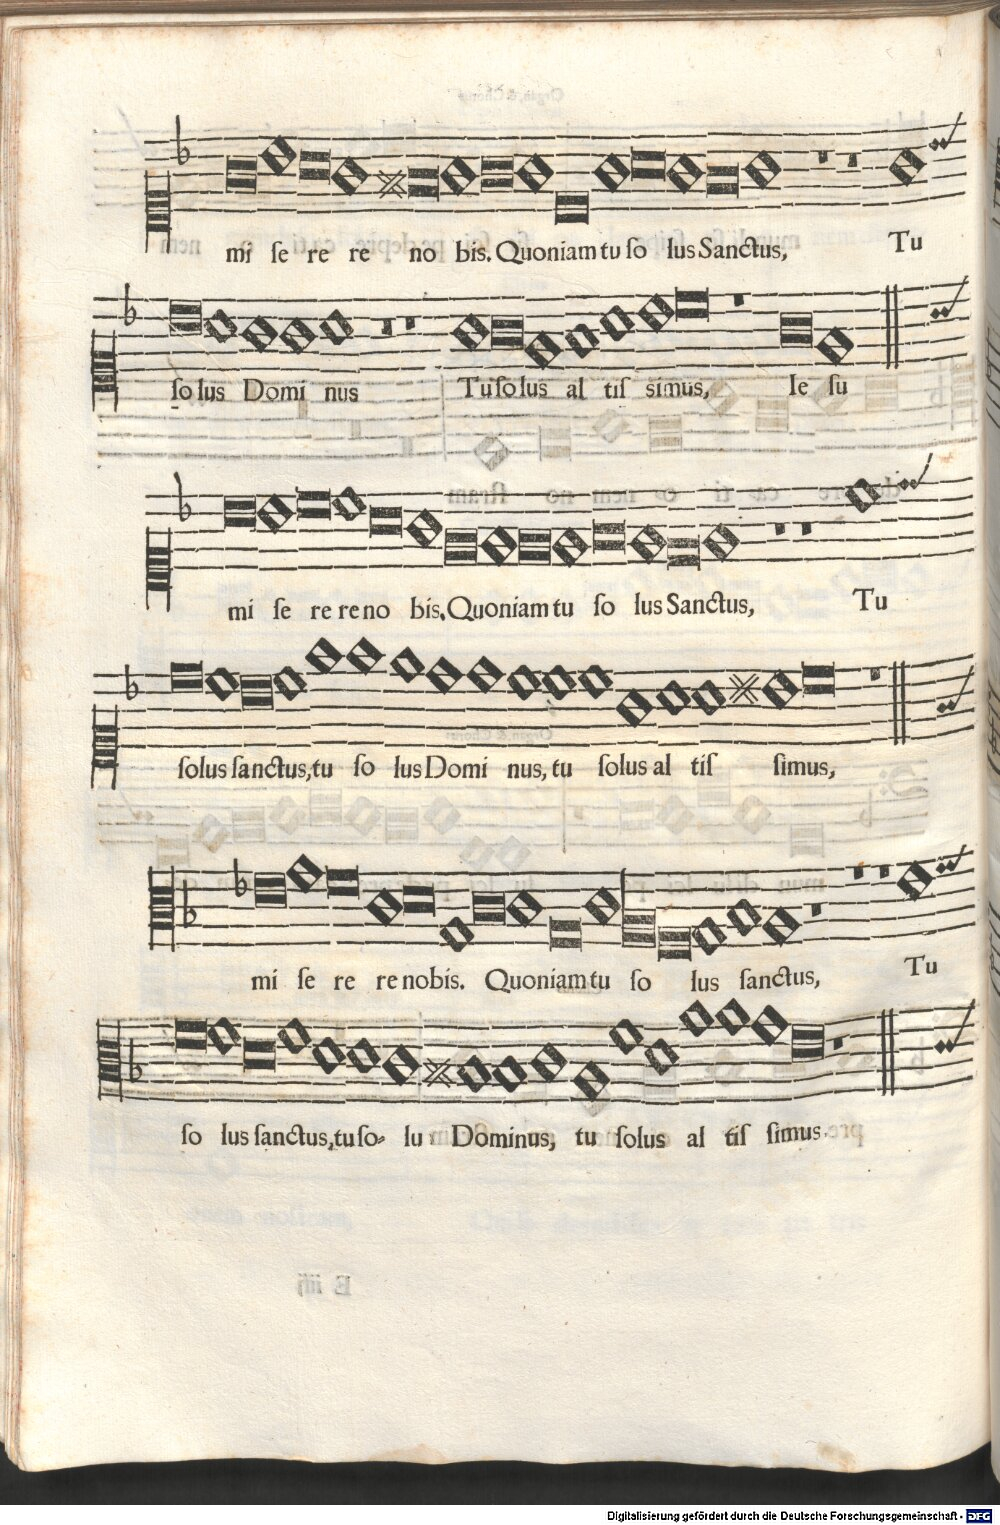 mi ſe re re no bis. Quoniam tu ſo lus Sanctus, Tu
ſo lus Domi nus Tu ſo lus al tiſ simus, Ie ſu
mi ſe re re no bis, Quoniam tu ſo lus Sanctus, Tu
ſolus ſanctus, tu ſo lus Domi nus, tu ſolus al tiſ simus,
mi ſe re re nobis. Quoniam tu ſo lus ſanctus, Tu
ſo lus ſanctus, tu ſo- lu Dominus, tu ſolus al tiſ simus.
Digitalisierung gefördert durch die Deutsche Forschungsgemeinschaft - DFG